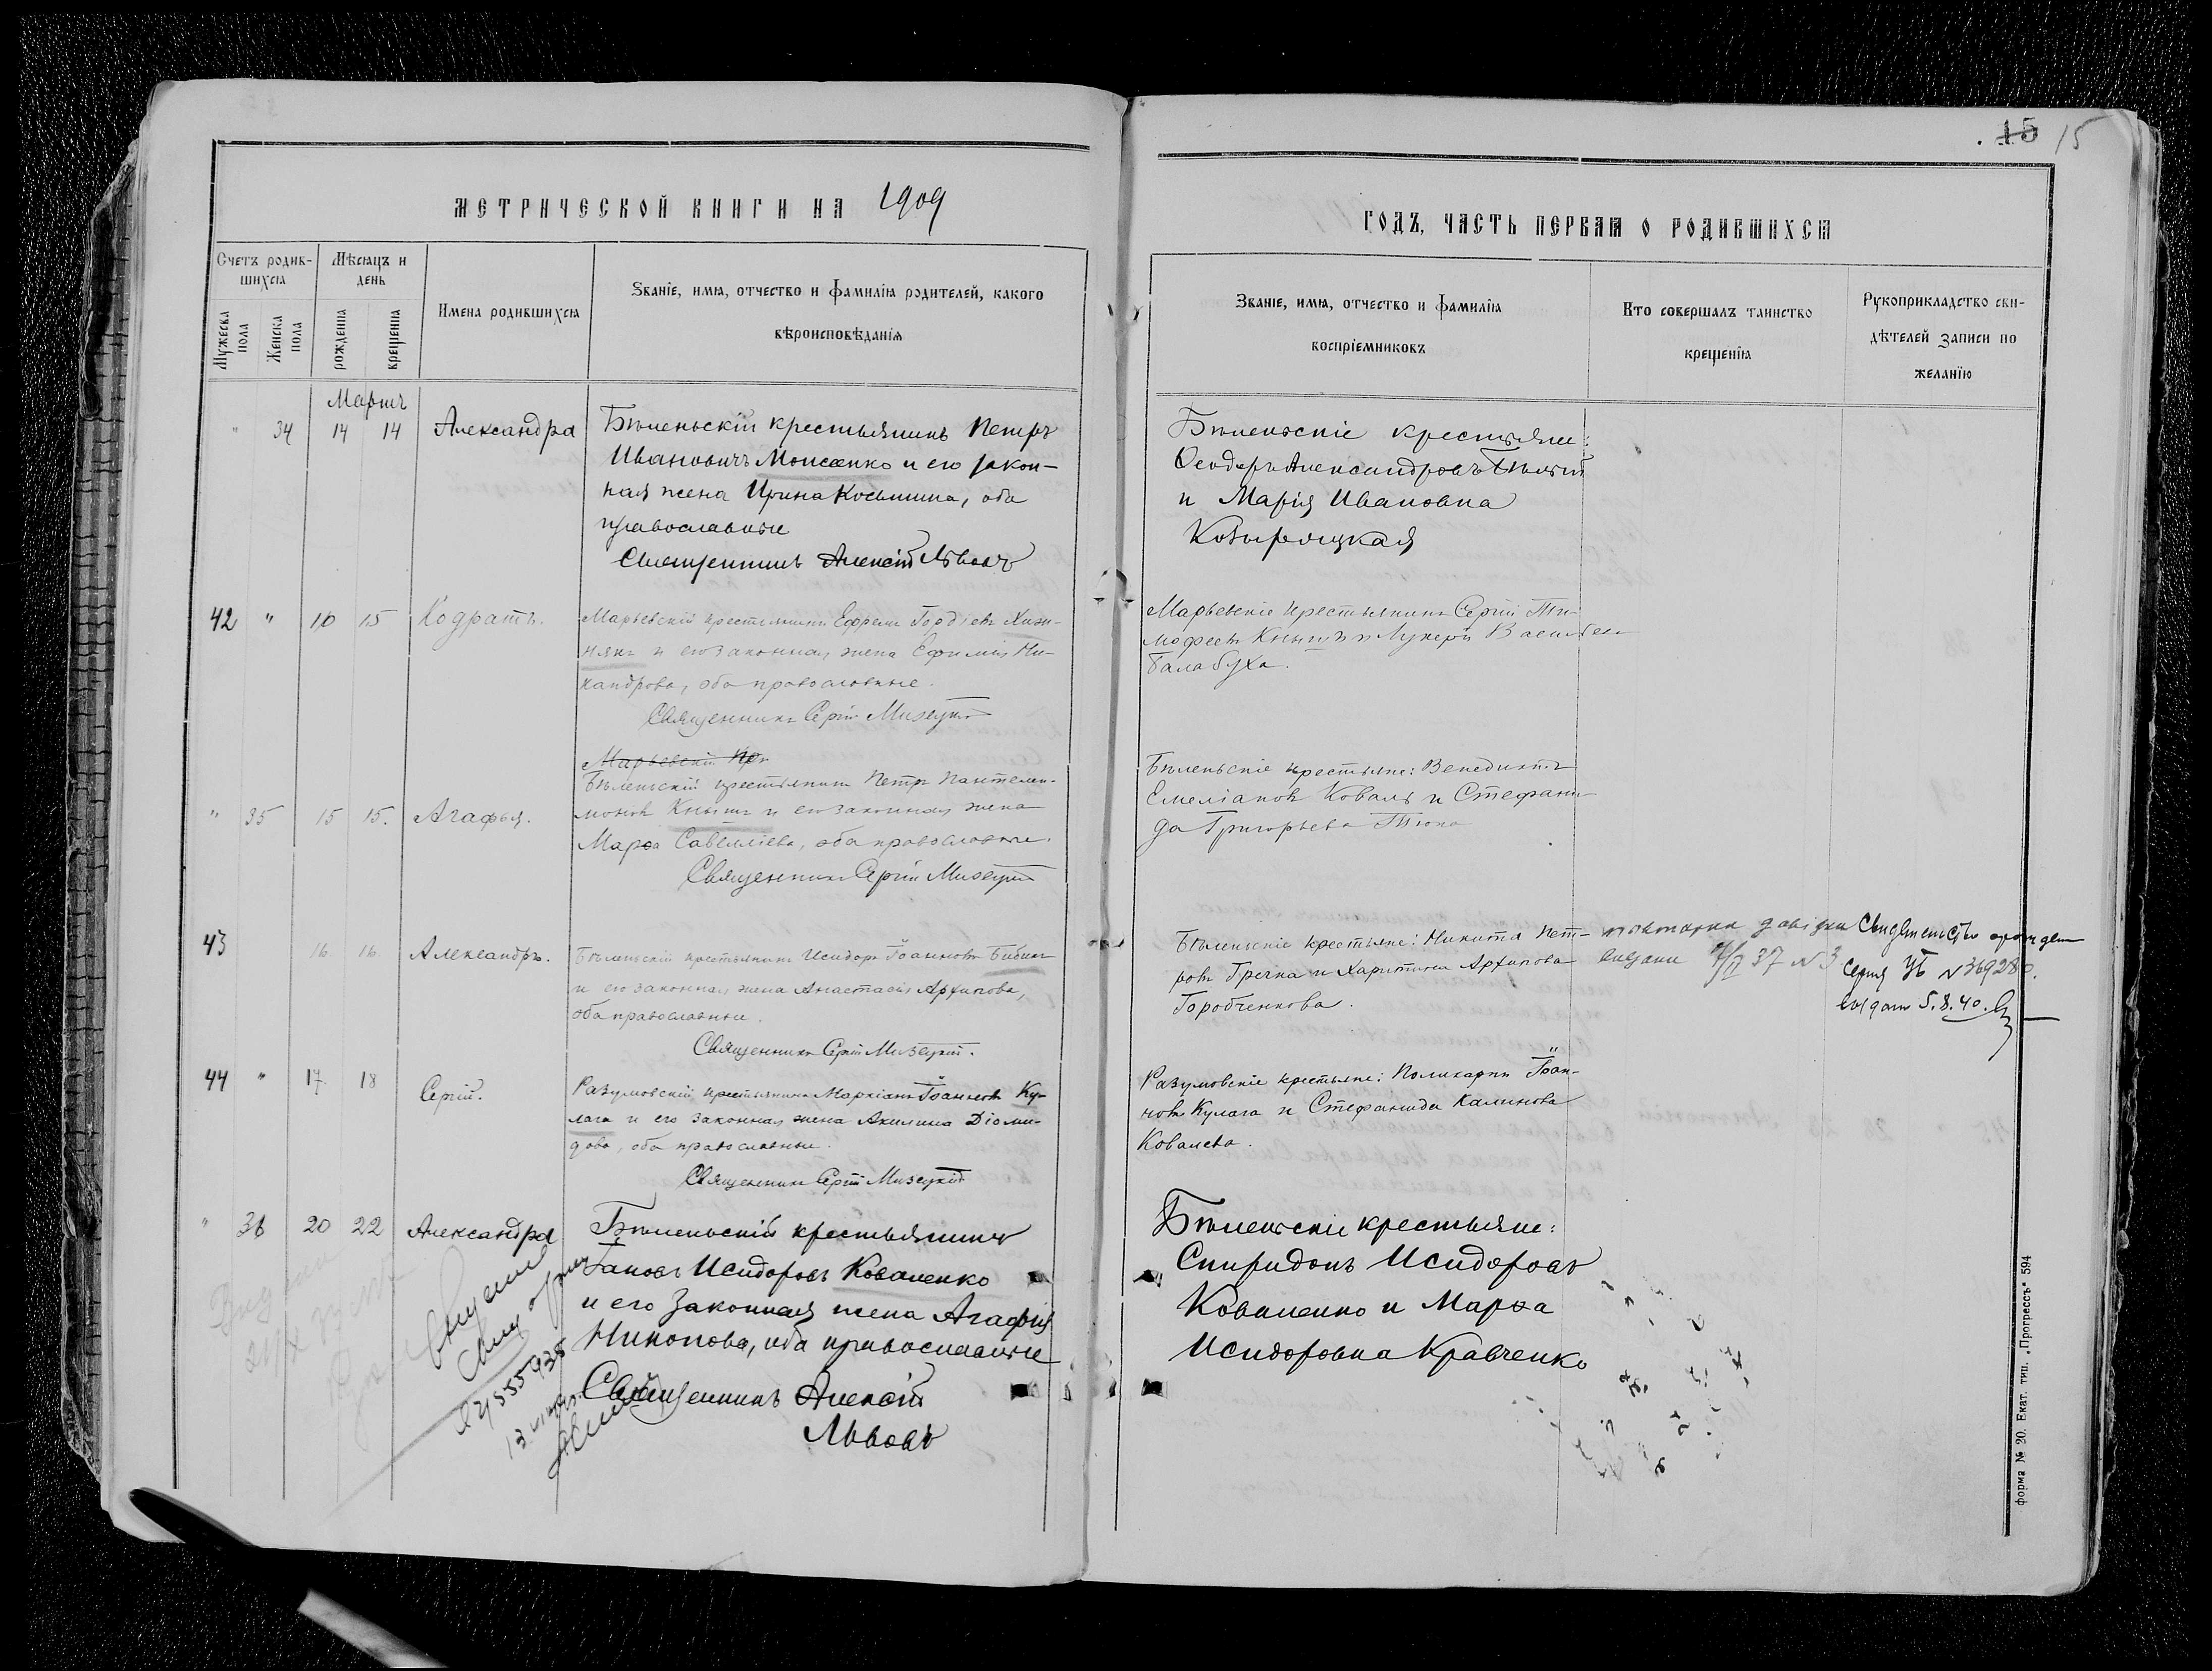 15 15
МЕТРИЧЕСКОЙ КНИГИ НА 1909
ГОДЪ, ЧАСТЬ ПЕРВАЯ О РОДИВШИХСЯ
Счетъ родив-
шихся
Мужеска
пола
Женска
пола
Мѣсяцъ и
день
рожденія
крещенія
Имена родившихся
Званіе, имя, отчество и фамилія родителей, какого
вѣроисповѣданія
Званіе, имя, отчество и фамилія
воспріемниковъ
Кто совершалъ таинство
крещенія
Рукоприкладство сви-
дѣтелей записи по
желанію
Мартъ
" 34 14 14 Александра
Бѣленьскій крестьянинъ Петръ
Ивановичъ Моисеенко и его закон-
ная жена Ирина Косьмина, оба
православные
Священникъ Алексій Львовъ
Бѣленьскіе крестьяне:
Ѳеодоръ Александровъ Бѣлый
и Марія Ивановна
42 " 10 15 Кодратъ.
Марьевскій крестьянинъ Ефремъ Гордіевъ Хиж-
някъ и его законная жена Ефимія Ни-
кандрова, оба православные.
Священникъ Сергій Мизецкій
Марьевскіе крестьянинъ Сергій Ти-
мофеевъ Кнышъ и Лукерія Васильева
Балабуха.
Марьевскій кр
" 35 15 15. Агафья.
Бѣленьскій крестьянинъ Петръ Пантелеи-
моновъ Кнышъ и его законная жена
Марѳа Савелліева, оба православные.
Священникъ Сергій Мизецкій
Бѣленьскіе крестьяне: Венедиктъ
Емеліановъ Коваль и Стефани-
да Григорьева
43 16 16 Александръ.
Бѣленьскій крестьянинъ Исидоръ Іоанновъ
и его законная жена Анастасія Архипова,
оба православные.
Священникъ Сергій Мизецкій.
Бѣленьскіе крестьяне: Никита Пет-
ровъ Гречка и Харитина Архипова
Горобченкова.
довідка
37 N 3
Свидетельство
серия УБ N 369280.
выдано 5.8.40.
44 " 17 18 Сергій.
Разумовскій крестьянинъ Маркіанъ Іоанновъ Ку-
лага и его законная жена Акилина Діоми-
дова, оба православные.
Священникъ Сергій Мизецкій
Разумовскіе крестьяне: Поликарпъ Іоан-
новъ Кулага и Стефанида Калинова
Ковалева.
" 36 20 22 Александра
Бѣленьскій крестьянинъ
Іаковъ Исидоровъ Коваленко
и его законная жена Агафія
Никонова, оба православные
Священникъ Алексій
Львовъ
Бѣленьскіе крестьяне:
Спиридонъ Исидоровъ
Коваленко и Марѳа
Исидоровна Кравченко
форма № 20. Екат. тип. „Прогрессъ" 594